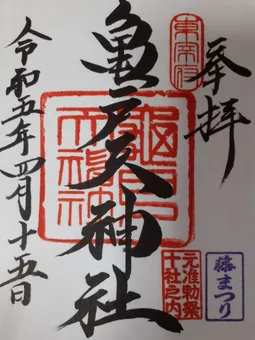 奉拝
東宰府
亀戸天神社
令和五年四月十五日
元准勅祭
十社之内
藤まつり